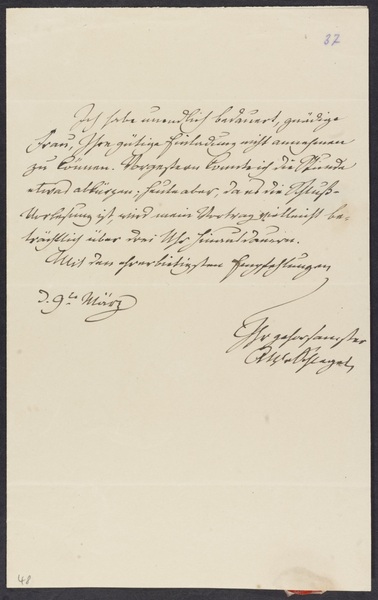 37
Ich habe unendlich bedauert, gnädige
Frau, Ihre gütige Einladung nicht annehmen
zu können. Vorgestern konnte ich die Stunde
etwas abkürzen; heute aber, da es die Schluß-
Vorlesung ist, wird mein Vortrag vielleicht be-
trächtlich über drei Uhr hinausdauern.
Mit den ehrerbietigsten Empfehlungen
d. 9ten März
Ihr gehorsamster
AWvSchlegel
48